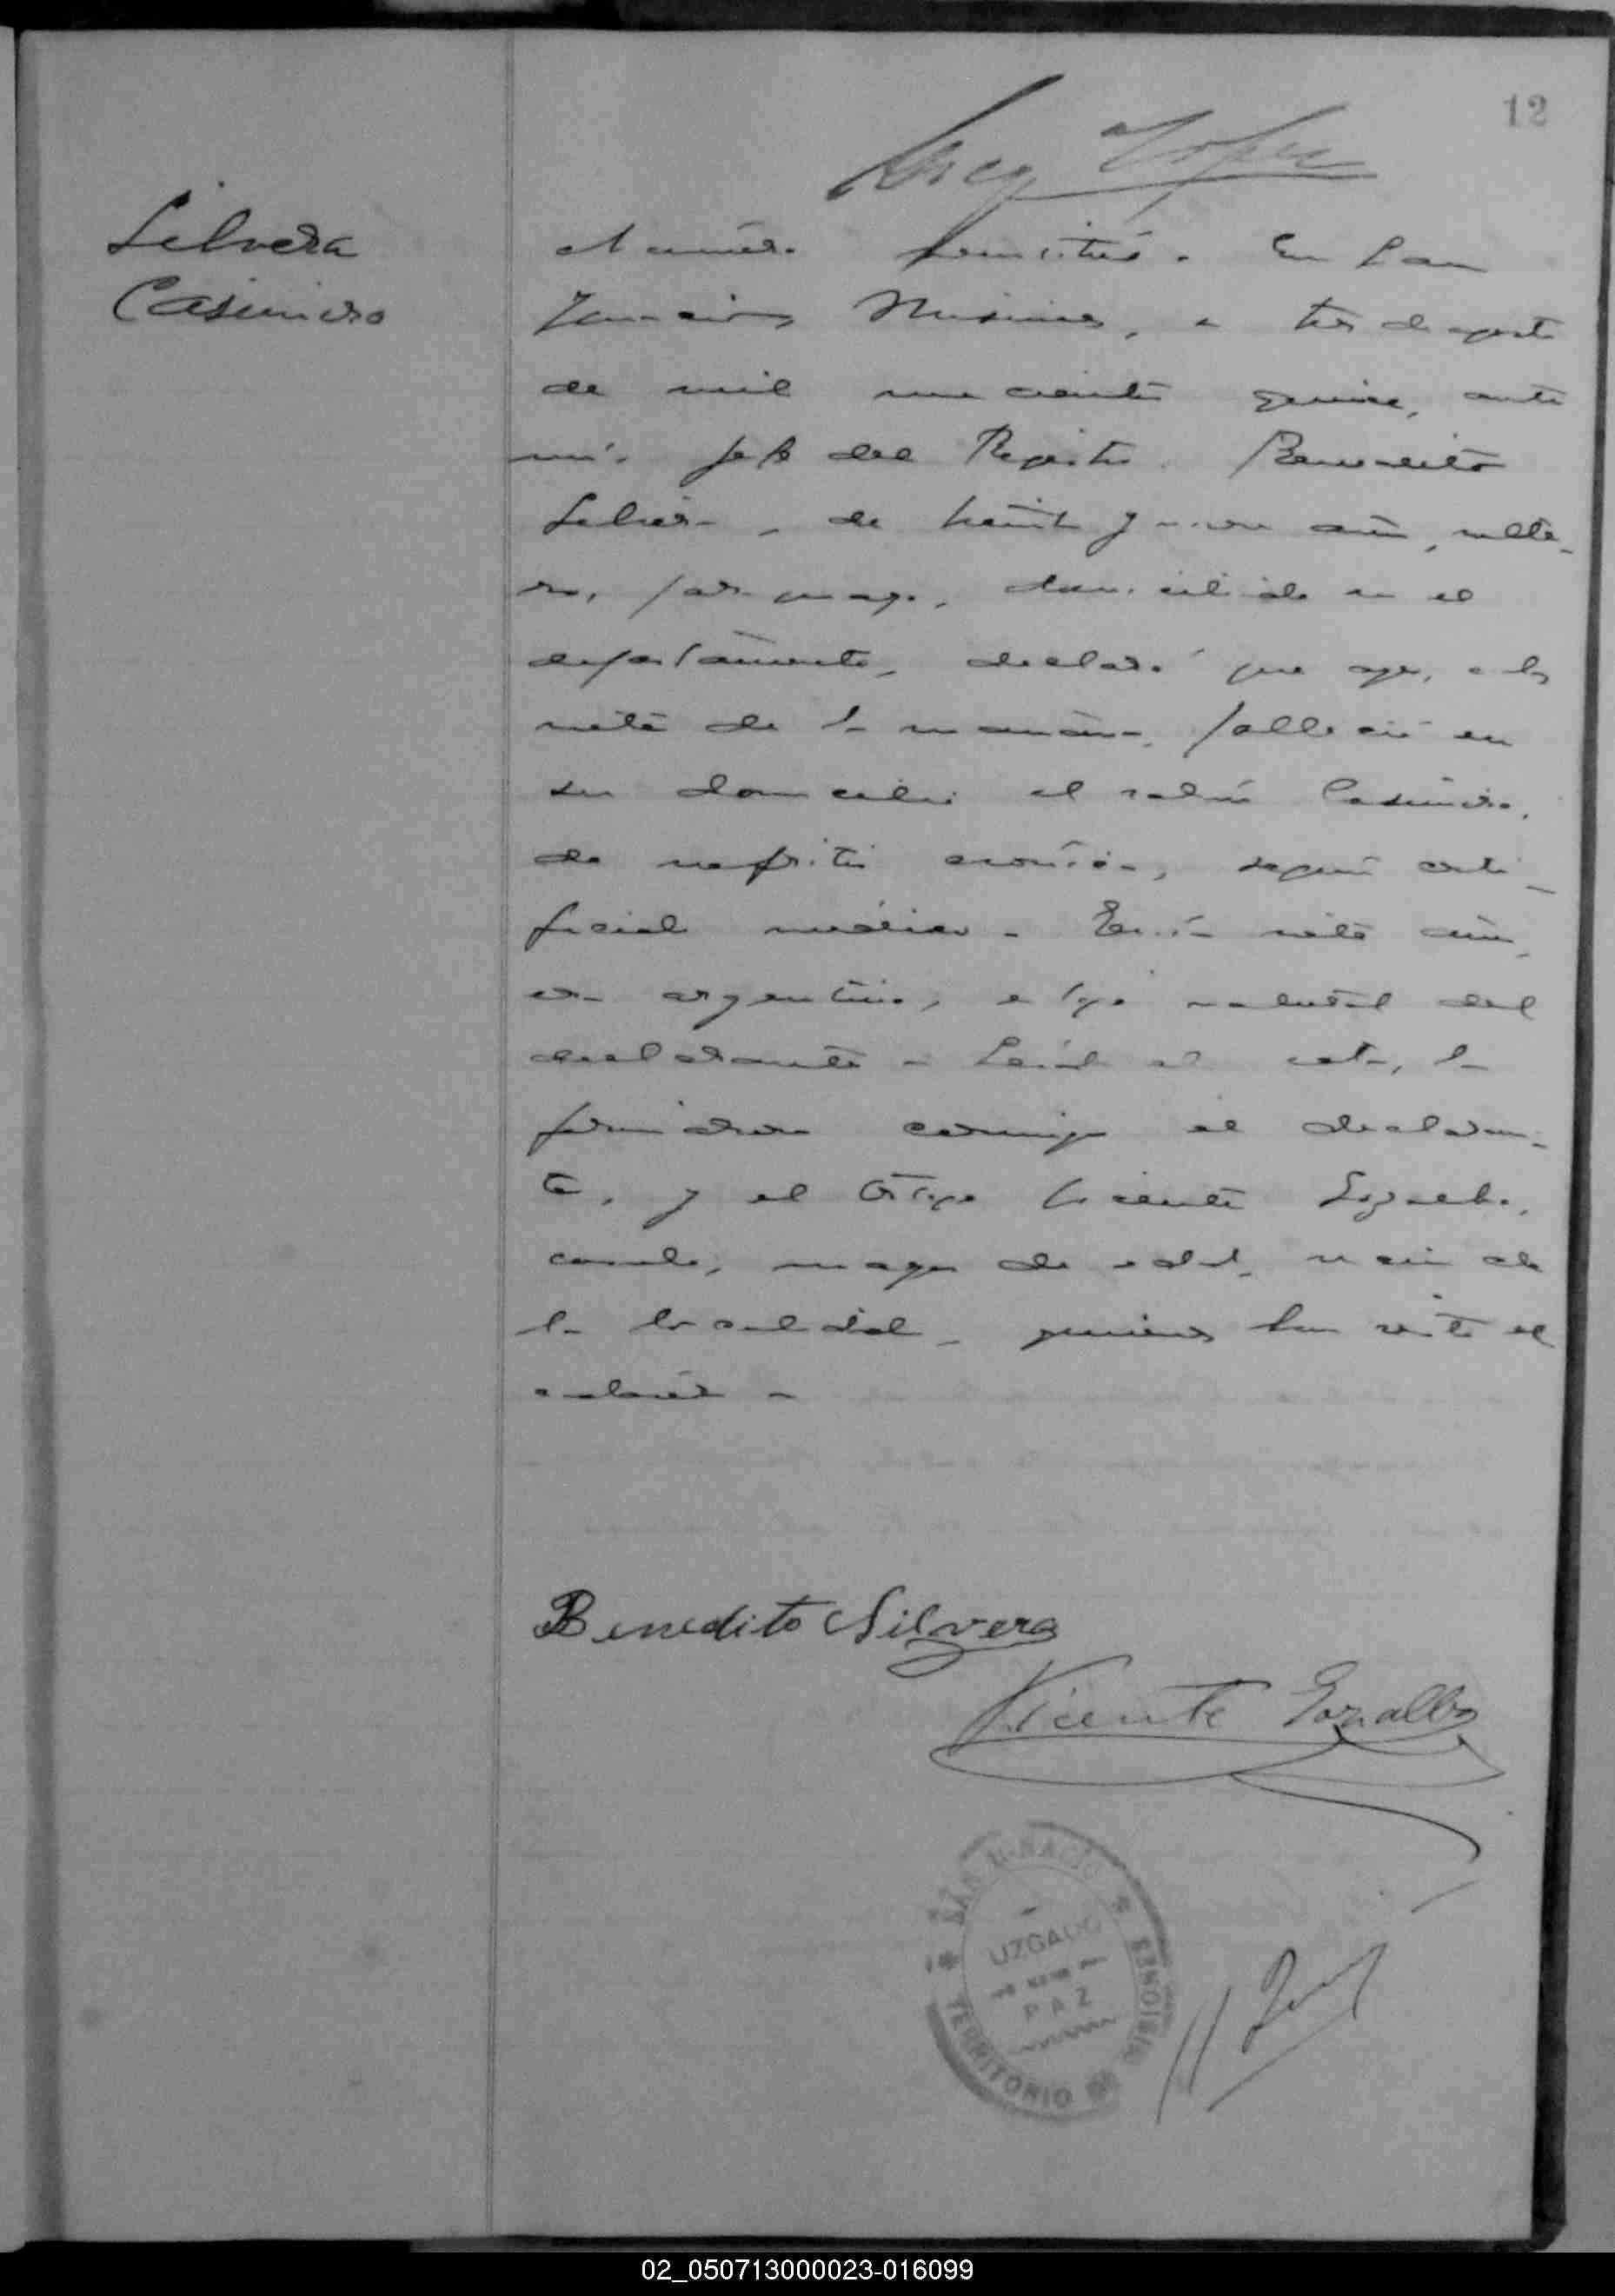 12
Lopez
Silvera
Casimiro
Número veintitrés. En San
Ignacio, Misiones, a tres de agosto
de mil novecientos quince, ante
mí, Jefe del Registro. Benedito
Silvera, de treinta y nueve años, solte-
ro, domiciliado en el
departamento, declaró que ayer, a las
siete de la mañana, falleció en
su domicilio el varón Casimiro,
de nefritis crónica, según certi-
ficado médico. Tenía siete años,
era argentino, e hijo natural del
declarante. Leída el acta, la
firmaron conmigo el declaran-
te, y el testigo Vicente Gozalbo,
casado, mayor de edad, vecino de
la localidad, quienes han visto el
cadáver.
Benedito Silvera
Vicente Gozalbo
SAN IGNACIO
UZGADO
PAZ
TERRITORIO DE MISIONES
02_050713000023-016099